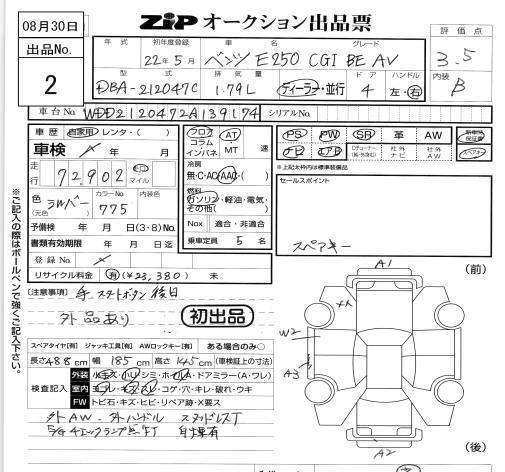 08月30日
ZIP オークション出品票
出品No.
2
評価点
3.5
内装
B
年式 初年度登録 車名 グレード
22年5月 ベンツ E250 CGI BE AV
型式 排気量 ドア ハンドル
DBA-212047C 1.79L ディーラー・並行 4 左・右
車台No. WDD2120472A139174 シリアルNo.
車歴 自家用 レンタ・( )
車検 年 月
走行 72,902 km マイル
色(元色) シルバー カラーNo. 775 内装色
予備検 年 月 日(3・8)No.
書類有効期限 年 月 日迄
登録No.
リサイクル料金 有(¥23,380) 未
フロア コラム インパネ AT MT 速
冷房
無・C・AC・AAC・( )
燃料
ガソリン・軽油・電気・その他( )
Nox 適合・非適合
乗車定員 5 名
PS PW SR 革 AW 新車時保証書
ナビ エアB 社外ナビ 社外AW スペアキー
※上記太枠内は標準装備品
セールスポイント
スペアキー
[注意事項] スタートボタン後日
外品あり
初出品
スペアタイヤ[有] ジャッキ工具[有] AWロックキー[有] ある場合のみ○
長さ488cm 幅185cm 高さ145cm (車検証上の寸法)
検査記入
外装 小キズ・小ヘコ・シミ・ホイル・ドアミラー(A・ワレ)
室内 ヨゴレ・キズ・スレ・コゲ・穴・キレ・破れ・ウキ
FW トビ石・キズ・ヒビ・リペア跡・X要ス
外AW 外ハンドル スタッドレスT
※ご記入の際はボールペンで強くご記入下さい。
(前)
A1
XX
W2
A3
A2
(後)